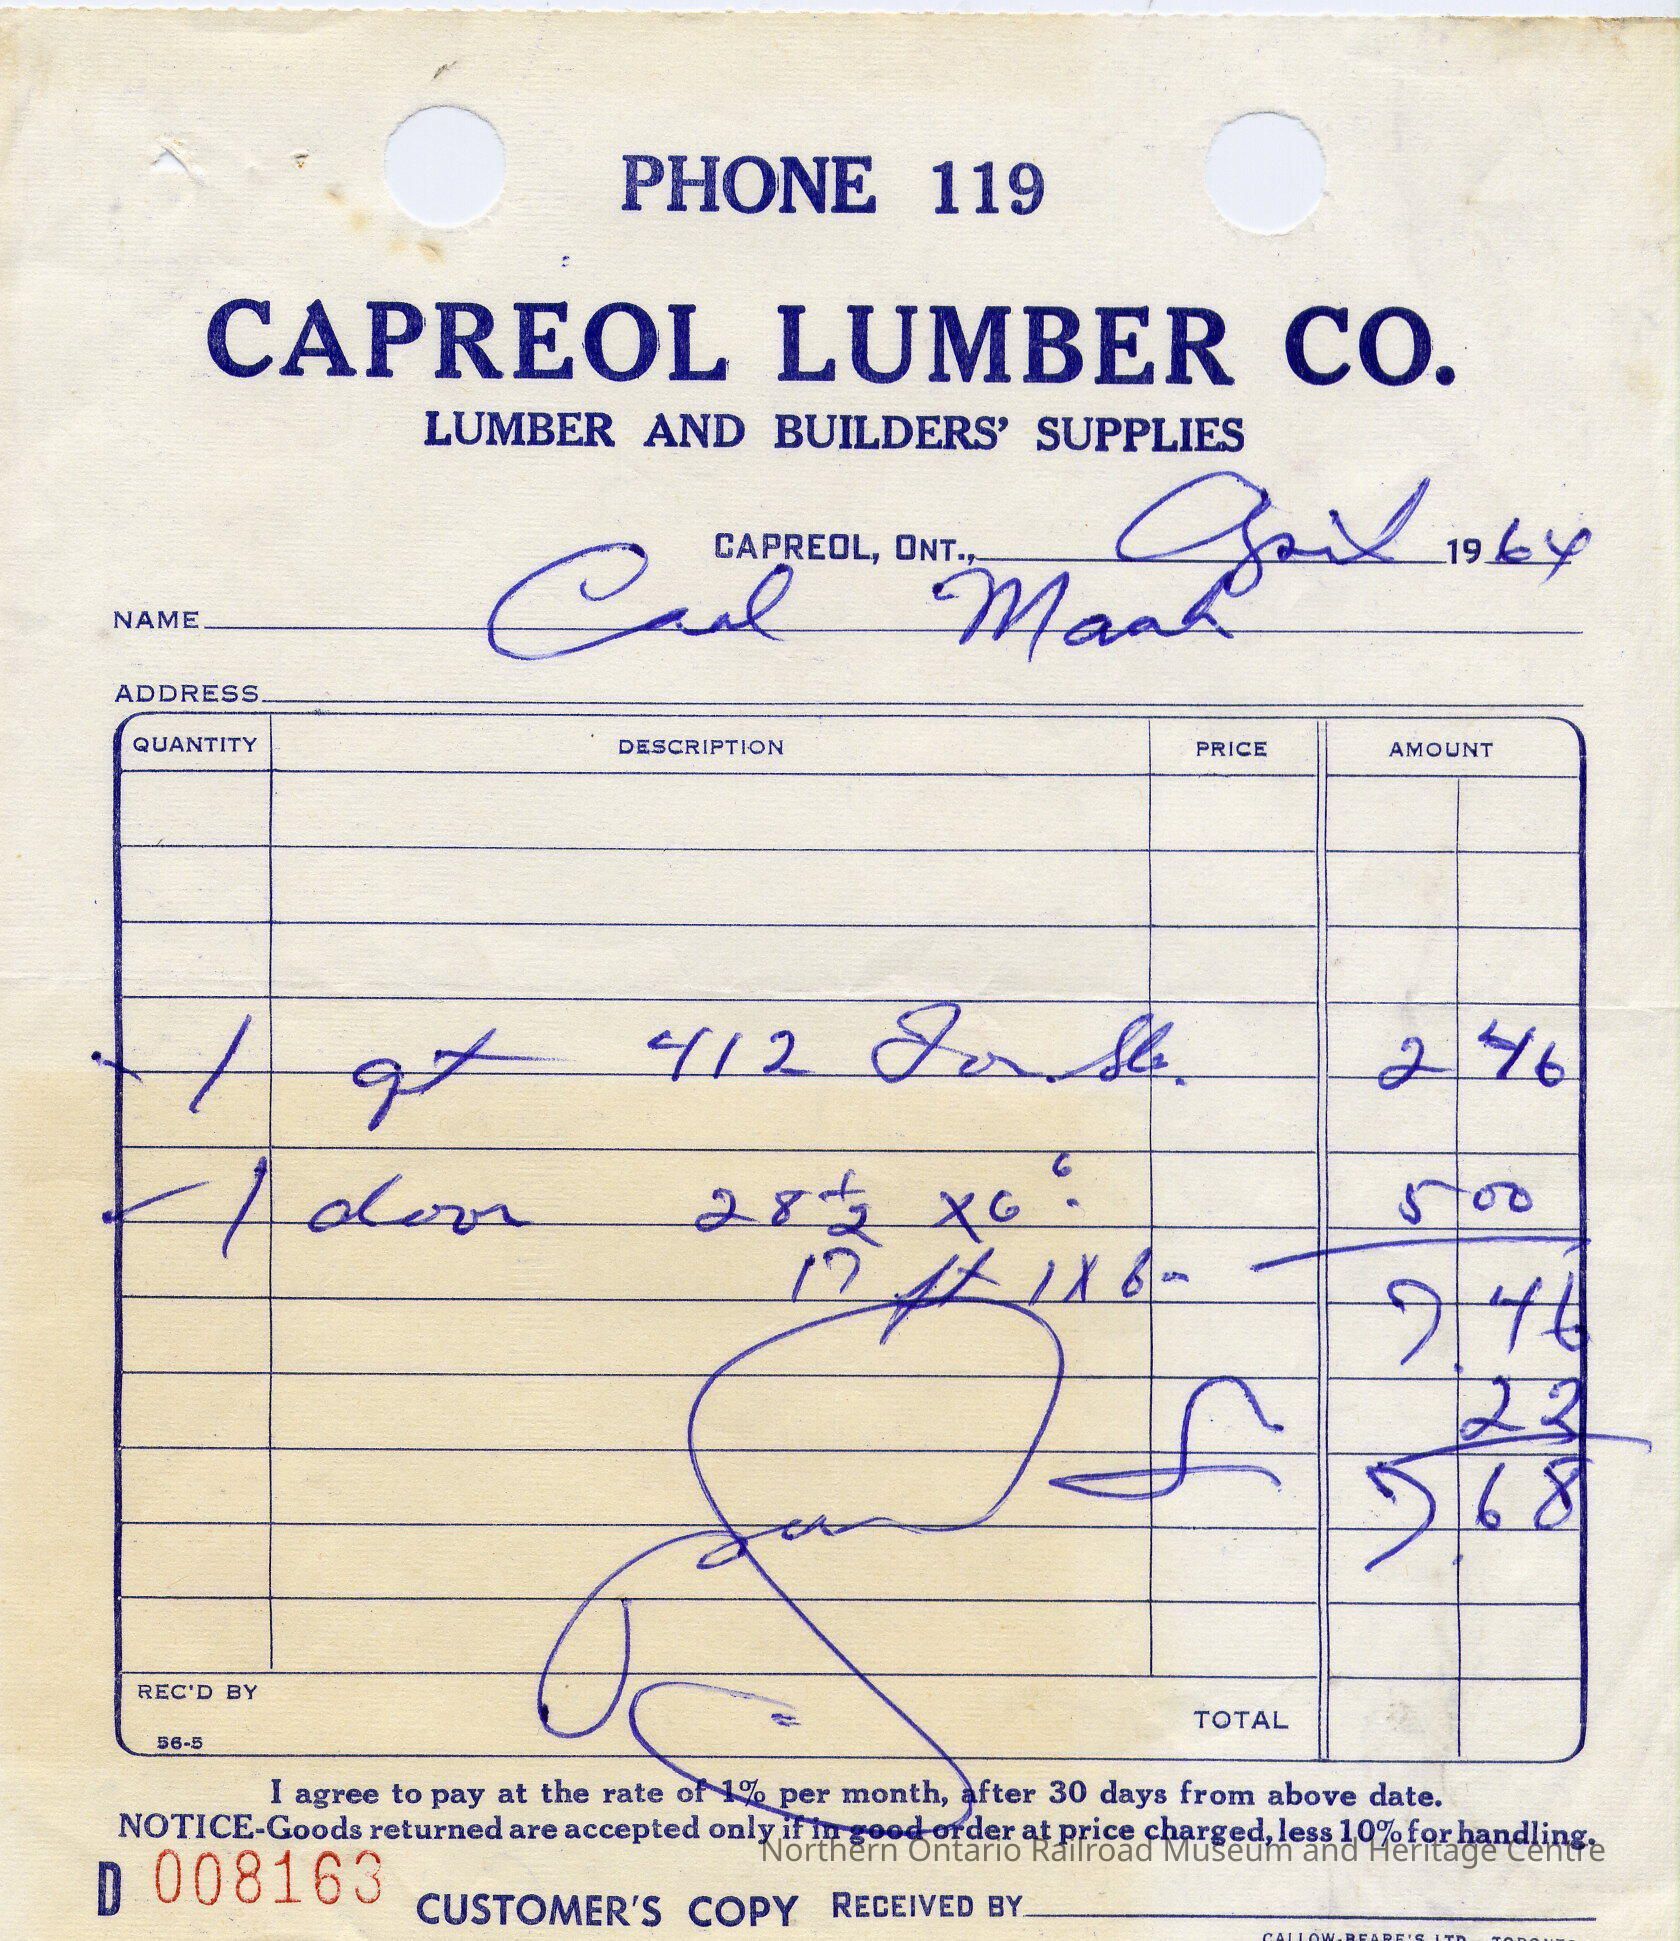 PHONE 119
CAPREOL LUMBER CO.
LUMBER AND BUILDERS' SUPPLIES
CAPREOL, ONT., April 1964
NAME Carl
ADDRESS
QUANTITY DESCRIPTION PRICE AMOUNT
1 qt 412 2 46
1 door 28 1/2 x 6 6 5 00
17 ft 1 X 6
7.46
22
7.68
REC'D BY
56-5
TOTAL
I agree to pay at the rate of 1% per month, after 30 days from above date.
NOTICE-Goods returned are accepted only if in good order at price charged, less 10% for handling.
Northern Ontario Railroad Museum and Heritage Centre
D 008163
CUSTOMER'S COPY RECEIVED BY